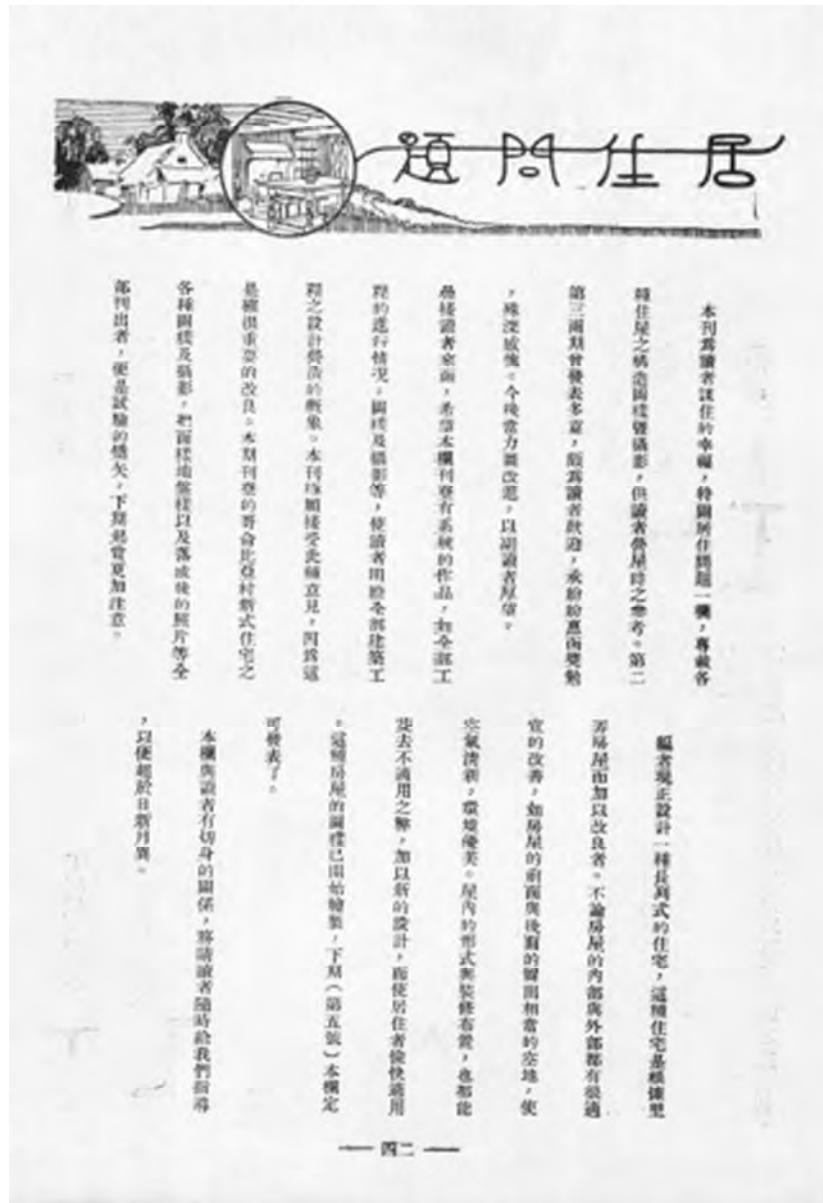 居住問題
本刊為讀者謀住的幸福，特闢居住問題一欄，專載各
種住屋之構造圖樣暨攝影，供讀者營屋時之參考。第二
第三兩期曾發表多意，頗為讀者歡迎，承紛紛惠函獎勉
，殊深感愧。今後當力圖改進，以副讀者厚望。
疊接讀者來函，希望本欄刊登有系統的作品，如全部工
程的進行情况，圖樣及攝影等，使讀者明瞭全部建築工
程之設計營造的概象。本刊極願接受此種意見，因為這
是確很重要的改良。本期刊登的哥侖比亞村新式住宅之
各種圖樣及攝影，把面樣地盤樣以及落成後的照片等全
部刊出者，便是試驗的嚆矢，下期起當更加注意。
編者現正設計一種長列式的住宅，這種住宅是根據里
弄房屋而加以改良者。不論房屋的內部與外部都有很適
宜的改善，如房屋的前面與後面的留開相當的空地，使
空氣清新，環境優美。屋內的形式與裝修布置，也都能
從去不適用之弊，加以新的設計，而使居住者愉快適用
。這種房屋的圖樣已開始繪製，下期（第五號）本欄定
可發表了。
本欄與讀者有切身的關係，將請讀者隨時給我們指導
，以便趨於日新月異。
— 四二 —